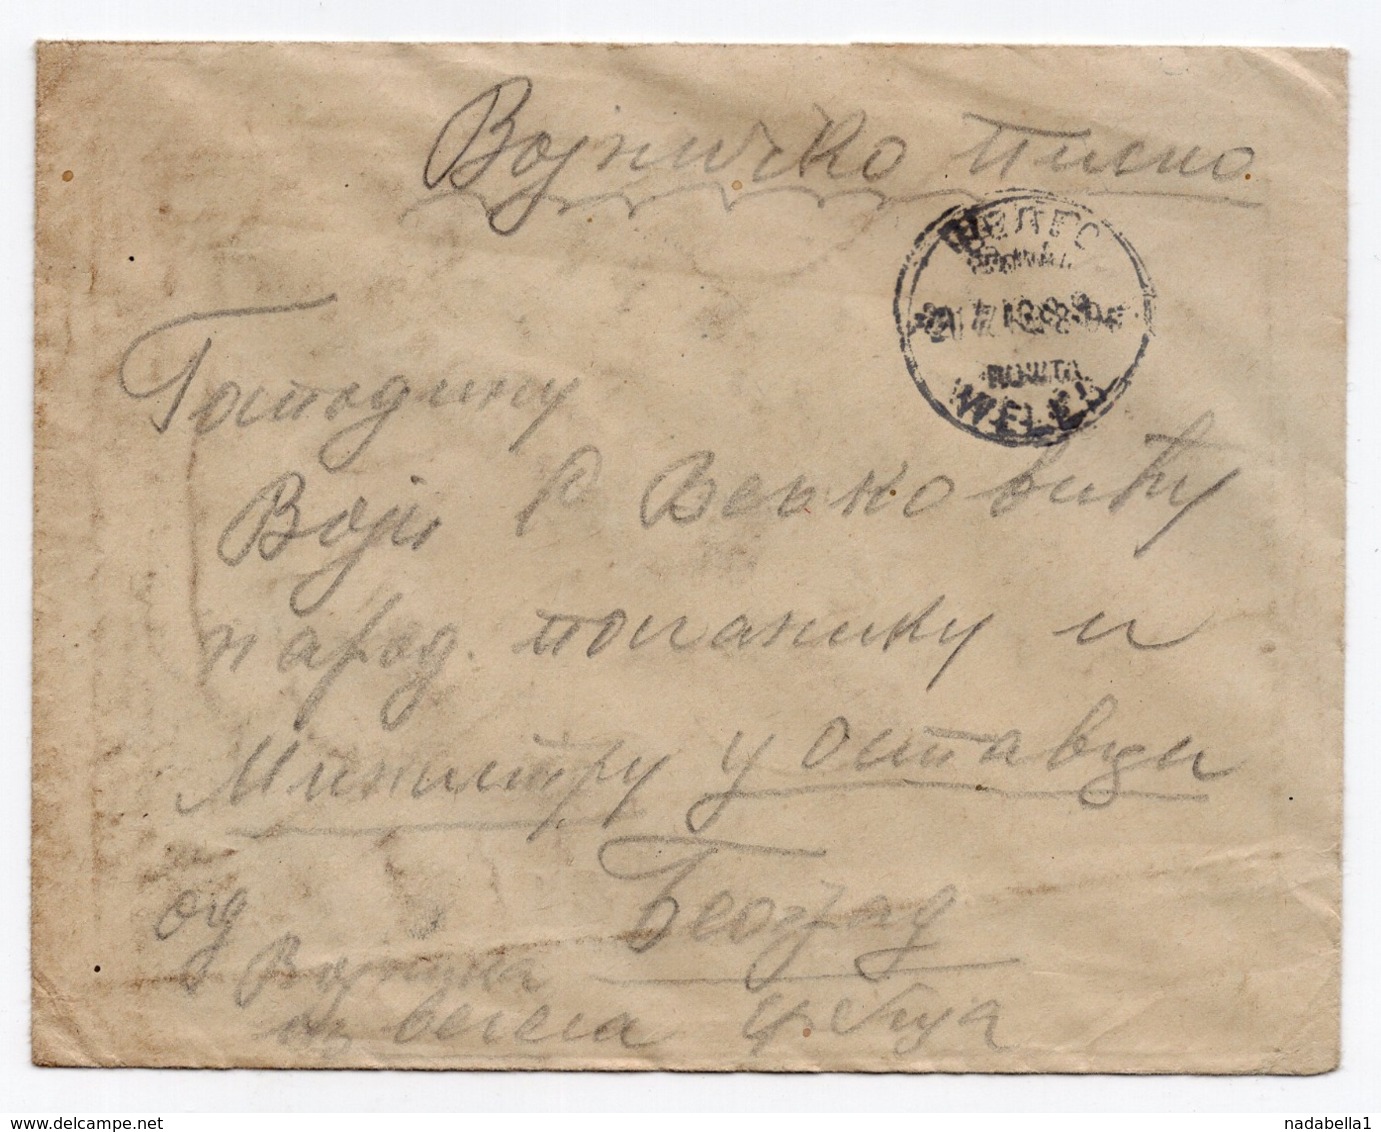 Војничко Писмо
ВЕЛЕС
ПОШТА
VELES
Господину
Воји Р Вељковићу
народ. посланику и
Министру у оставци
Београд
од
Војника
из велеса